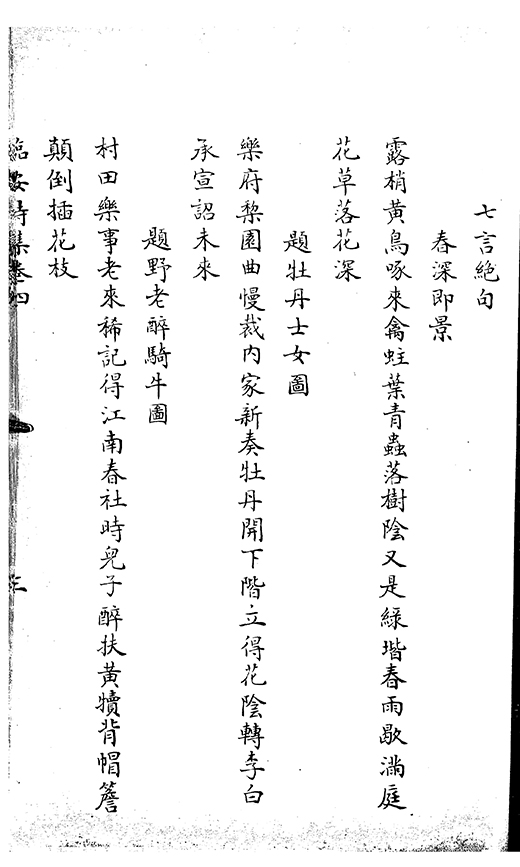 七言絶句
春深即景
露梢黃鳥啄來禽蛀葉青蟲落樹陰又是綠堦春雨歇滿庭
花草落花深
題牡丹士女圖
樂府梨園曲慢裁内家新奏牡丹開下階立得花陰轉李白
承宣詔未來
題野老醉騎牛圖
村田樂事老來稀記得江南春社時兒子醉扶黃犢背帽簷
顛倒插花枝
臨安詩集卷四
三